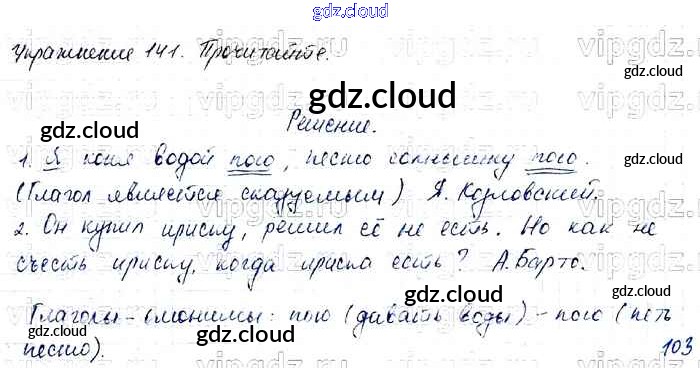 gdz.cloud
Упражнение 141. Прочитайте.
vipgdz.ru
gdz.cloud
gdz.cloud
Решение.
1. Я коня водой пою, песню солнышку пою.
(Глагол является сказуемым) Я. Козловский.
2. Он купил ириску, решил её не есть. Но как не
съесть ириску, когда ириска есть? А. Барто.
gdz.cloud
gdz.cloud
Глаголы-омонимы: пою (давать воды) - пою (петь
песню).
gdz.cloud
gdz.cloud
103